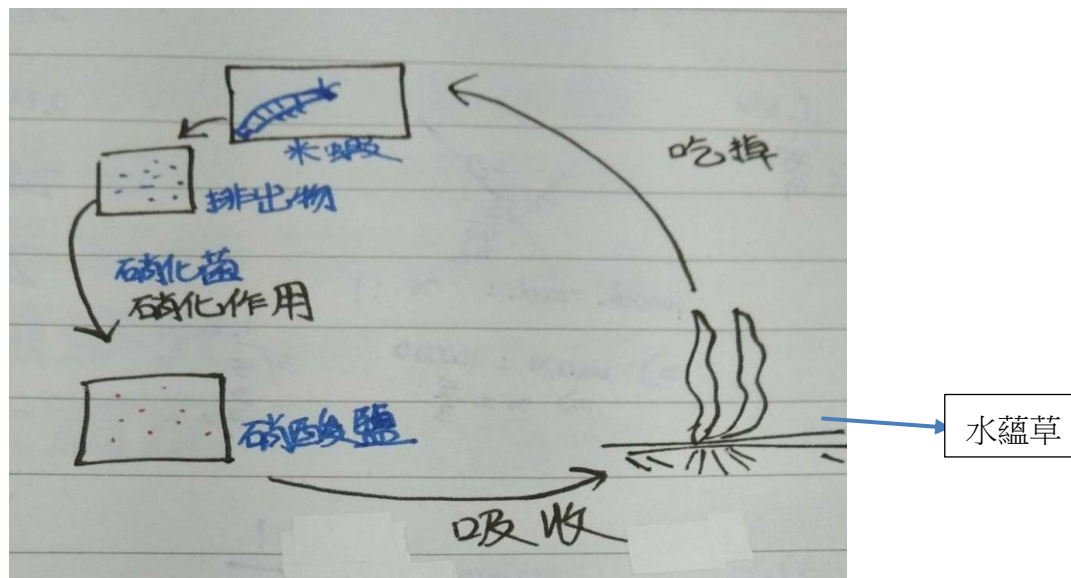 米蝦
吃掉
排出物
硝化菌
硝化作用
硝酸鹽
水蘊草
吸收